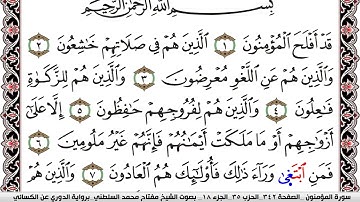 بِسْمِ اللَّهِ الرَّحْمَٰنِ الرَّحِيمِ
قَدْ أَفْلَحَ الْمُؤْمِنُونَ ١ الَّذِينَ هُمْ فِي صَلَاتِهِمْ خَٰشِعُونَ ٢
وَالَّذِينَ هُمْ عَنِ اللَّغْوِ مُعْرِضُونَ ٣ وَالَّذِينَ هُمْ لِلزَّكَوٰةِ
فَٰعِلُونَ ٤ وَالَّذِينَ هُمْ لِفُرُوجِهِمْ حَٰفِظُونَ ٥ إِلَّا عَلَىٰ
أَزْوَٰجِهِمْ أَوْ مَا مَلَكَتْ أَيْمَٰنُهُمْ فَإِنَّهُمْ غَيْرُ مَلُومِينَ ٦
فَمَنِ ابْتَغَىٰ وَرَآءَ ذَٰلِكَ فَأُو۟لَٰٓئِكَ هُمُ الْعَادُونَ ٧ وَالَّذِينَ هُمْ
سورة المؤمنون الصفحة ٣٤٢ الحزب ٣٥ الجزء ١٨ بصوت الشيخ مفتاح محمد السلطني برواية الدوري عن الكسائي